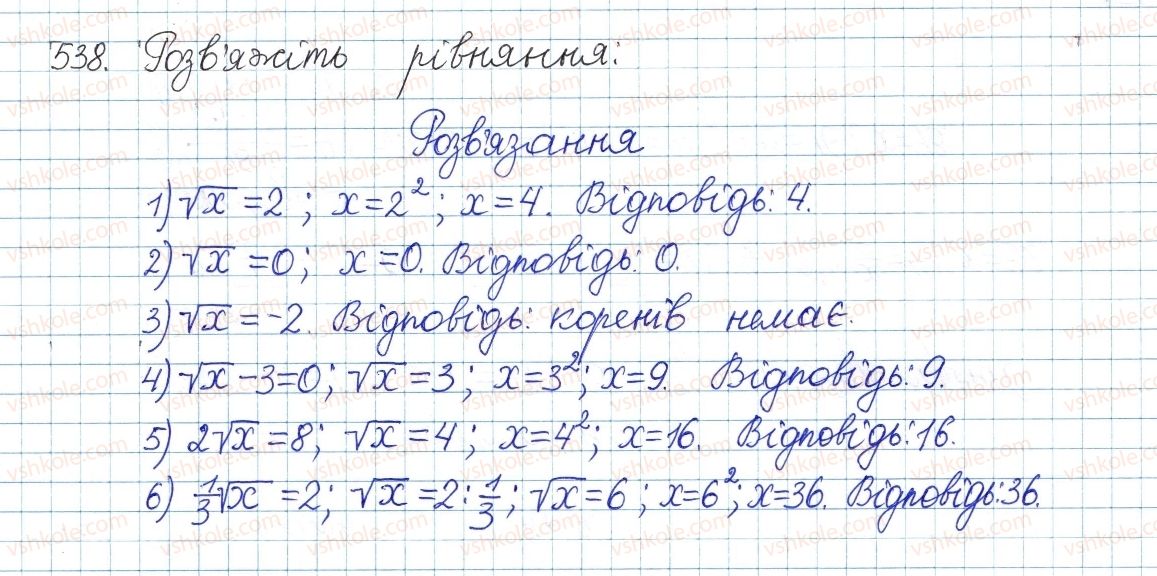 538. Розв'яжіть рівняння:
Розв'язання
1) √x = 2; x = 2²; x = 4. Відповідь: 4.
2) √x = 0; x = 0. Відповідь: 0.
3) √x = -2. Відповідь: коренів немає.
4) √x - 3 = 0; √x = 3; x = 3²; x = 9. Відповідь: 9.
5) 2√x = 8; √x = 4; x = 4²; x = 16. Відповідь: 16.
6) 1/3 √x = 2; √x = 2 : 1/3; √x = 6; x = 6²; x = 36. Відповідь: 36.